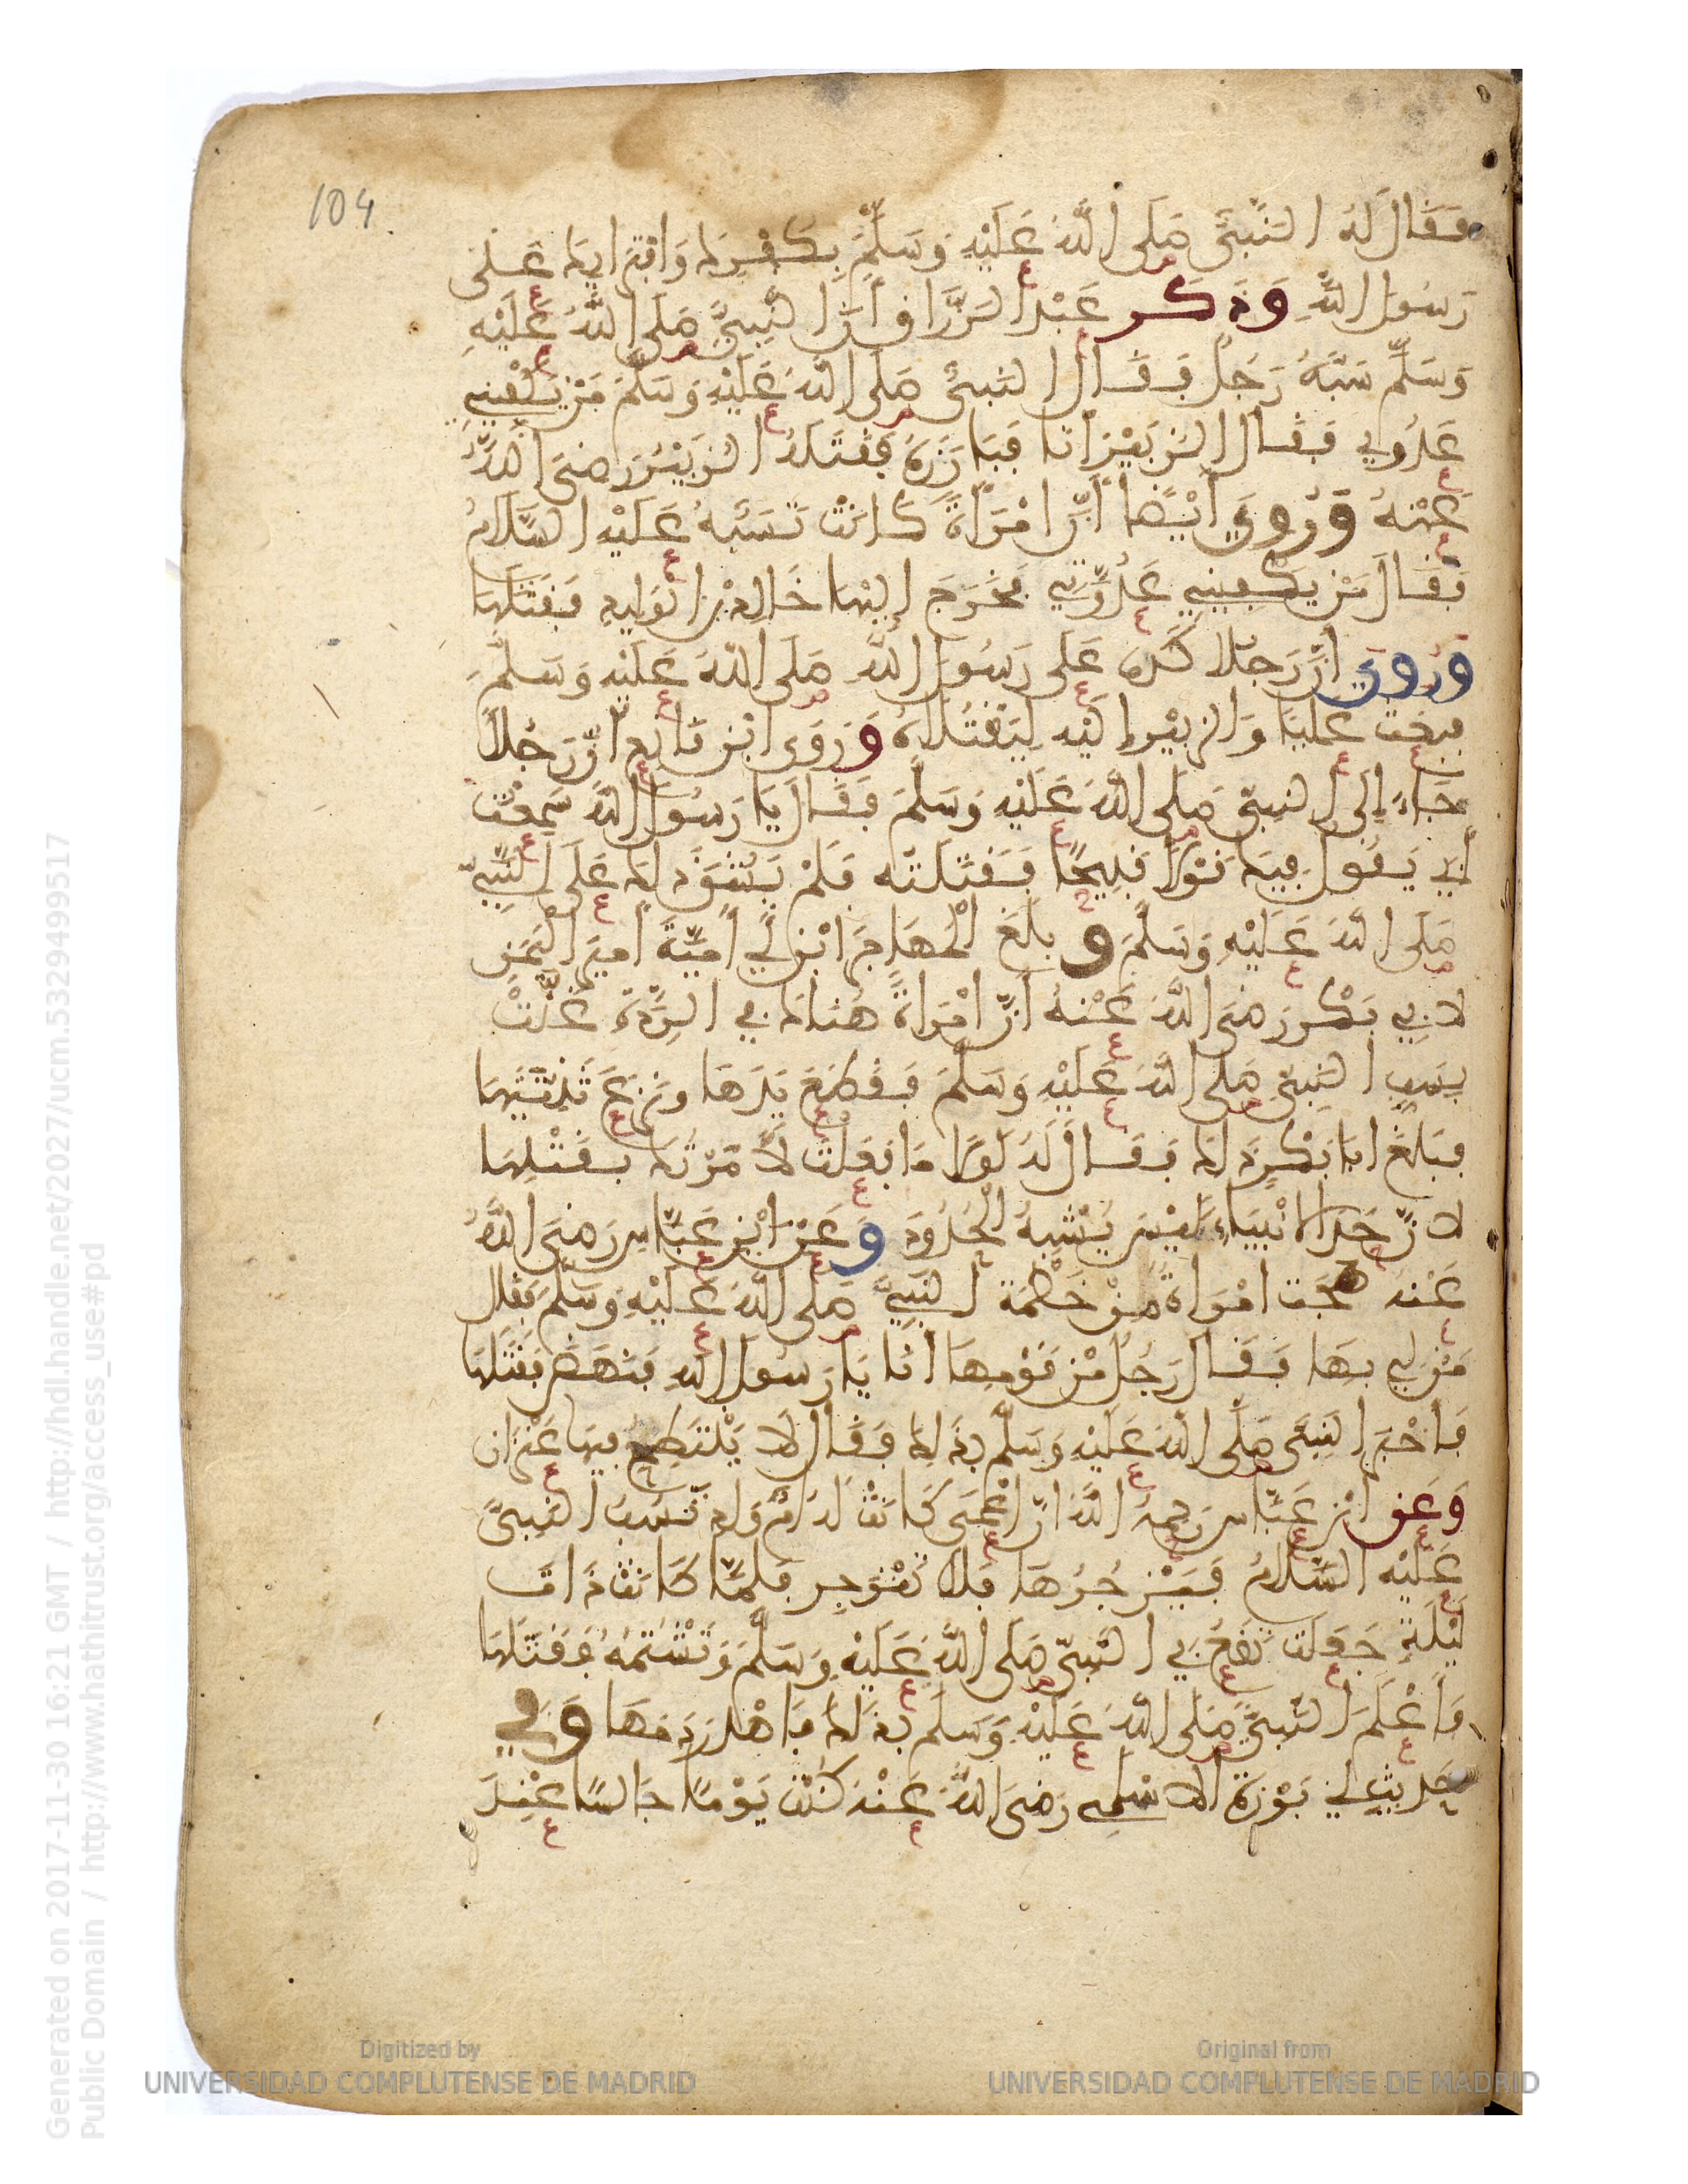 104
فَقَالَ لَهُ النَّبِيُّ صَلَى اللَّهُ عَلَيْهِ وَسَلَّمَ بِكُفْرِكَ وَافْتِرَايِكَ عَلَى
رَسُولِ اللَّهِ وَذَكَرَ عَبْدُ الرَّزَّاقِ أَنَّ النَّبِيَّ صَلَى اللَّهُ عَلَيْهِ
وَسَلَّمَ سَبَّهُ رَجُلٌ فَقَالَ النَّبِيُّ صَلَى اللَّهُ عَلَيْهِ وَسَلَّمَ مَنْ يَكْفِينِي
عَدُوِّي فَقَالَ الزُّبَيْرُ أَنَا فَبَارَزَهُ فَقَتَلَهُ الزُّبَيْرُ رَضِيَ اللَّهُ
عَنْهُ وَرُوِيَ أَيْضًا أَنَّ امْرَأَةً كَانَتْ تَسُبُّهُ عَلَيْهِ السَّلَامُ
فَقَالَ مَنْ يَكْفِينِي عَدُوَّتِي فَخَرَجَ إِلَيْهَا خَالِدُ بْنُ الْوَلِيدِ فَقَتَلَهَا
وَرُوِيَ أَنَّ رَجُلًا كَذَبَ عَلَى رَسُولِ اللَّهِ صَلَى اللَّهُ عَلَيْهِ وَسَلَّمَ
فَبَعَثَ عَلِيًّا وَالزُّبَيْرَ إِلَيْهِ لِيَقْتُلَاهُ وَرَوَى ابْنُ قَانِعٍ أَنَّ رَجُلًا
جَاءَ إِلَى النَّبِيِّ صَلَى اللَّهُ عَلَيْهِ وَسَلَّمَ فَقَالَ يَا رَسُولَ اللَّهِ سَمِعْتُ
أَبِي يَقُولُ فِيكَ قَوْلًا قَبِيحًا فَقَتَلْتُه فَلَمْ يَشُقَّ ذَلِكَ عَلَى النَّبِيِّ
صَلَى اللَّهُ عَلَيْهِ وَسَلَّمَ وَبَلَغَ الْمُهَاجِرَ ابْنَ أَبِي أُمَيَّةَ أَمِيرَ الْيَمَنِ
لِأَبِي بَكْرٍ رَضِيَ اللَّهُ عَنْهُ أَنَّ امْرَأَةً هُنَاكَ فِي الرِّدَّةِ غَنَّتْ
بِسَبِّ النَّبِيِّ صَلَى اللَّهُ عَلَيْهِ وَسَلَّمَ فَقَطَعَ يَدَهَا وَنَزَعَ ثَنِيَّتَيْهَا
فَبَلَغَ أَبَا بَكْرٍ ذَلِكَ فَقَالَ لَهُ لَوْلَا مَا فَعَلْتَ لَأَمَرْتُكَ بِقَتْلِهَا
لِأَنَّ حَدَّ الْأَنْبِيَاءِ لَيْسَ يُشْبِهُ الْحُدُودَ وَعَنْ ابْنِ عَبَّاسٍ رَضِيَ اللَّهُ
عَنْهُ هَجَتِ امْرَأَةٌ مِنْ خَطْمَةَ النَّبِيَّ صَلَى اللَّهُ عَلَيْهِ وَسَلَّمَ فَقَالَ
مَنْ لِي بِهَا فَقَالَ رَجُلٌ مِنْ قَوْمِهَا أَنَا يَا رَسُولَ اللَّهِ فَنَهَضَ فَقَتَلَهَا
فَأَخْبَرَ النَّبِيَّ صَلَى اللَّهُ عَلَيْهِ وَسَلَّمَ بِذَلِكَ فَقَالَ لَا يَنْتَطِحُ فِيهَا عَنْزَانِ
وَعَنِ ابْنِ عَبَّاسٍ رَحِمَهُ اللَّهُ أَنَّ أَعْمَى كَانَتْ لَهُ أُمُّ وَلَدٍ تَسُبُّ النَّبِيَّ
عَلَيْهِ السَّلَامُ فَيَزْجُرُهَا فَلَا تَنْزَجِرُ فَلَمَّا كَانَتْ ذَاتَ
لَيْلَةٍ جَعَلَتْ تَقَعُ فِي النَّبِيِّ صَلَى اللَّهُ عَلَيْهِ وَسَلَّمَ وَتَشْتُمُهُ فَقَتَلَهَا
وَأَعْلَمَ النَّبِيَّ صَلَى اللَّهُ عَلَيْهِ وَسَلَّمَ بِذَلِكَ فَأَهْدَرَ دَمَهَا وَفِي
حَدِيثِ أَبِي بَرْزَةَ الْأَسْلَمِي رَضِيَ اللَّهُ عَنْهُ كُنْتُ يَوْمًا جَالِسًا عِنْدَ
Generated on 2017-11-30 16:21 GMT / http://hdl.handle.net/2027/ucm.5329499517
Public Domain / http://www.hathitrust.org/access_use#pd
Digitized by
UNIVERSIDAD COMPLUTENSE DE MADRID
Original from
UNIVERSIDAD COMPLUTENSE DE MADRID